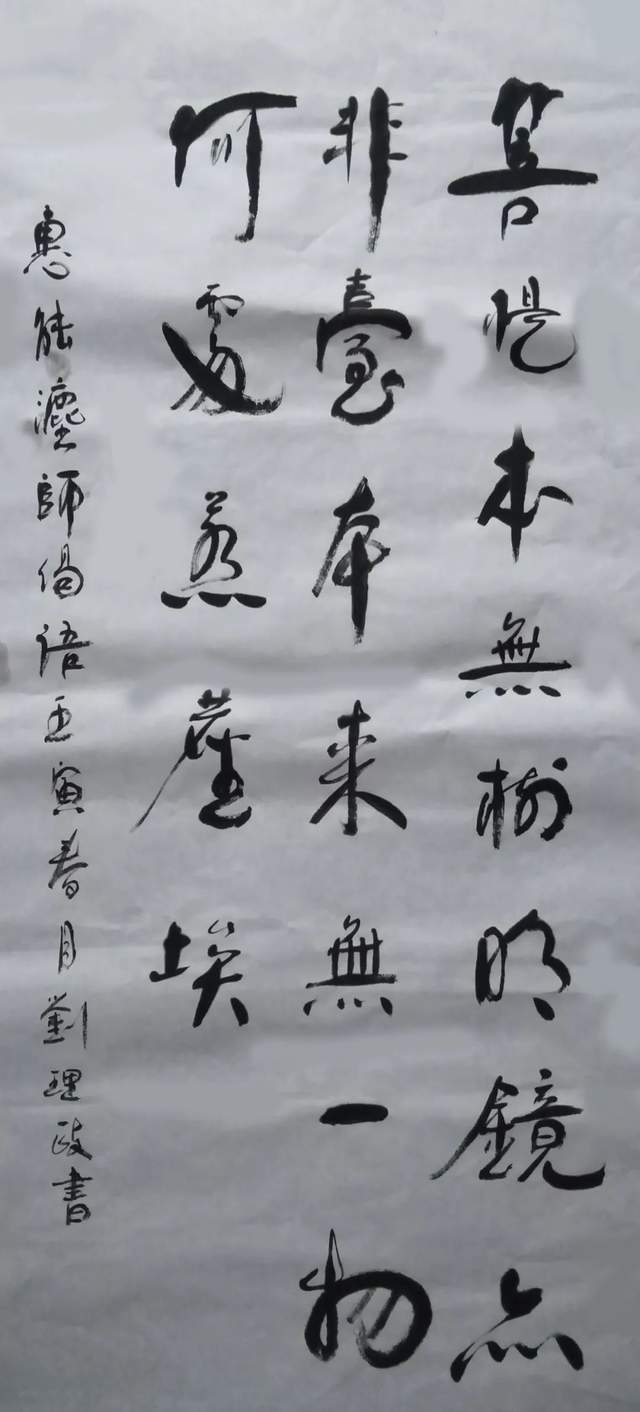 菩提本無樹明鏡亦
非臺本来無一物
何處惹塵埃
惠能禅師偈语壬寅春月劉理政書